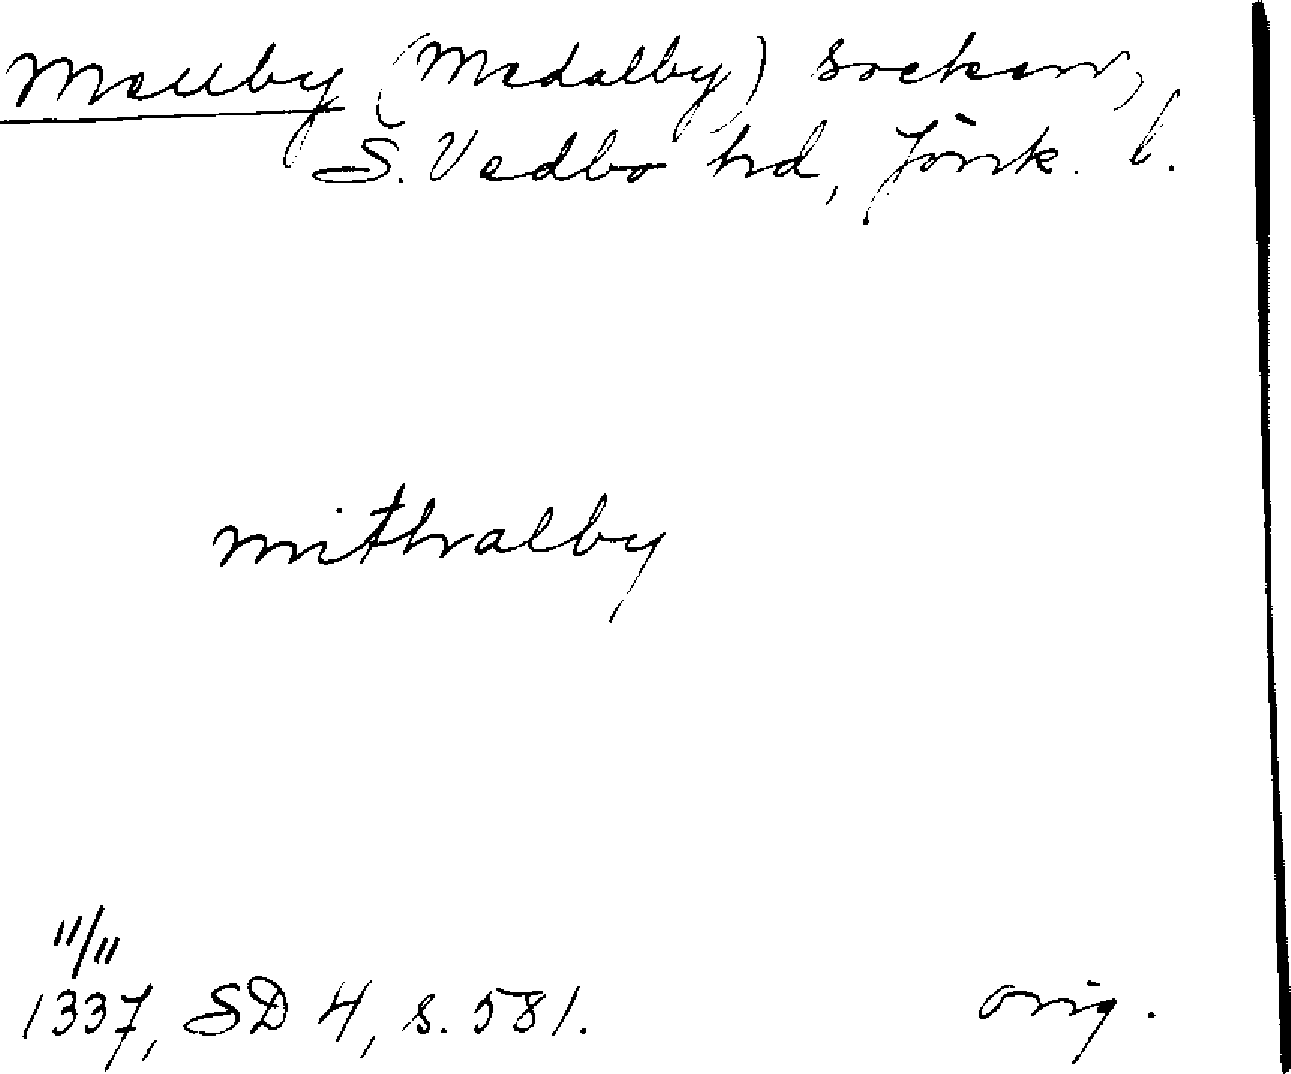 Mellby (Medalby) socken,
S. Vedbo hd, Jönk. l.
mithalby
11/11
1337, SD 4, s. 581.
orig.